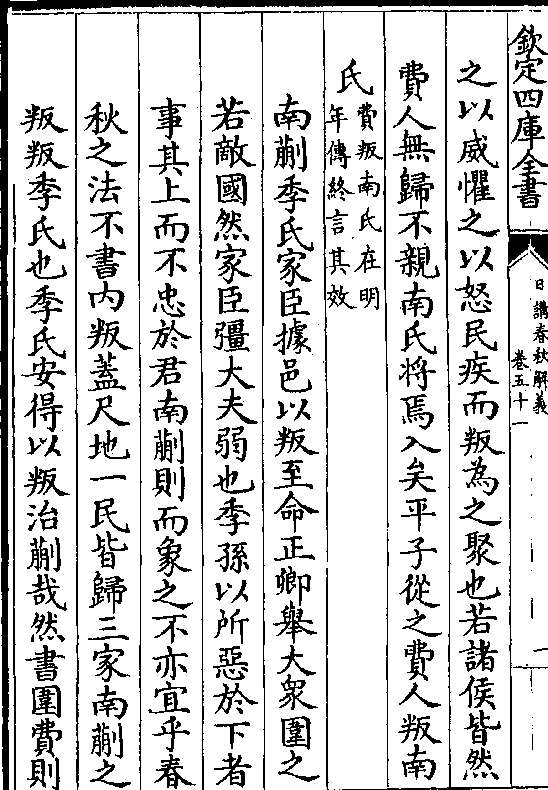 欽定四庫全書
日講春秋解義
卷五十一
一
之以威懼之以怒民疾而叛為之聚也若諸侯皆然
費人無歸不親南氏將焉入矣平子從之費人叛南
氏費叛南氏在明
年傳終言其效
南蒯季氏家臣據邑以叛至命正卿舉大衆圍之
若敵國然家臣彊大夫弱也季孫以所惡於下者
事其上而不忠於君南蒯則而象之不亦宜乎春
秋之法不書内叛蓋尺地一民皆歸三家南蒯之
叛叛季氏也季氏安得以叛治蒯哉然書圍費則